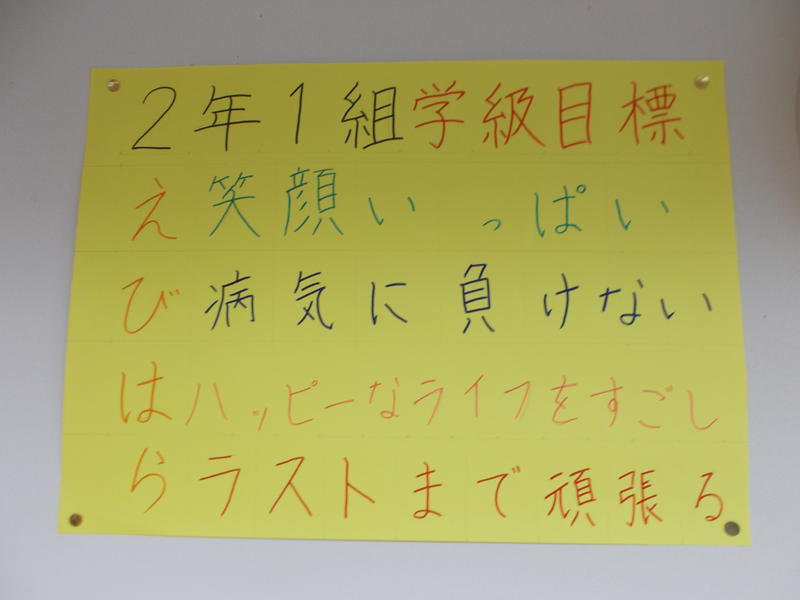 2年1組学級目標
え笑顔いっぱい
び病気に負けない
はハッピーなライフをすごし
らラストまで頑張る